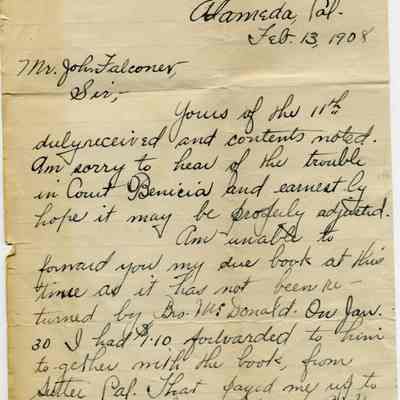 Alameda, Cal.
Feb. 13, 1908
Mr. John Falconer,
Sir,-
Yours of the 11th
duly received and contents noted.
Am sorry to hear of the trouble
in Court Benicia and earnestly
hope it may be properly adjusted.
Am unable to
forward you my due book at this
time as it has not been re-
turned by Bro. McDonald. On Jan.
30 I had $9.10 forwarded to him
to-gether with the book, from
Cal. That payed me up to